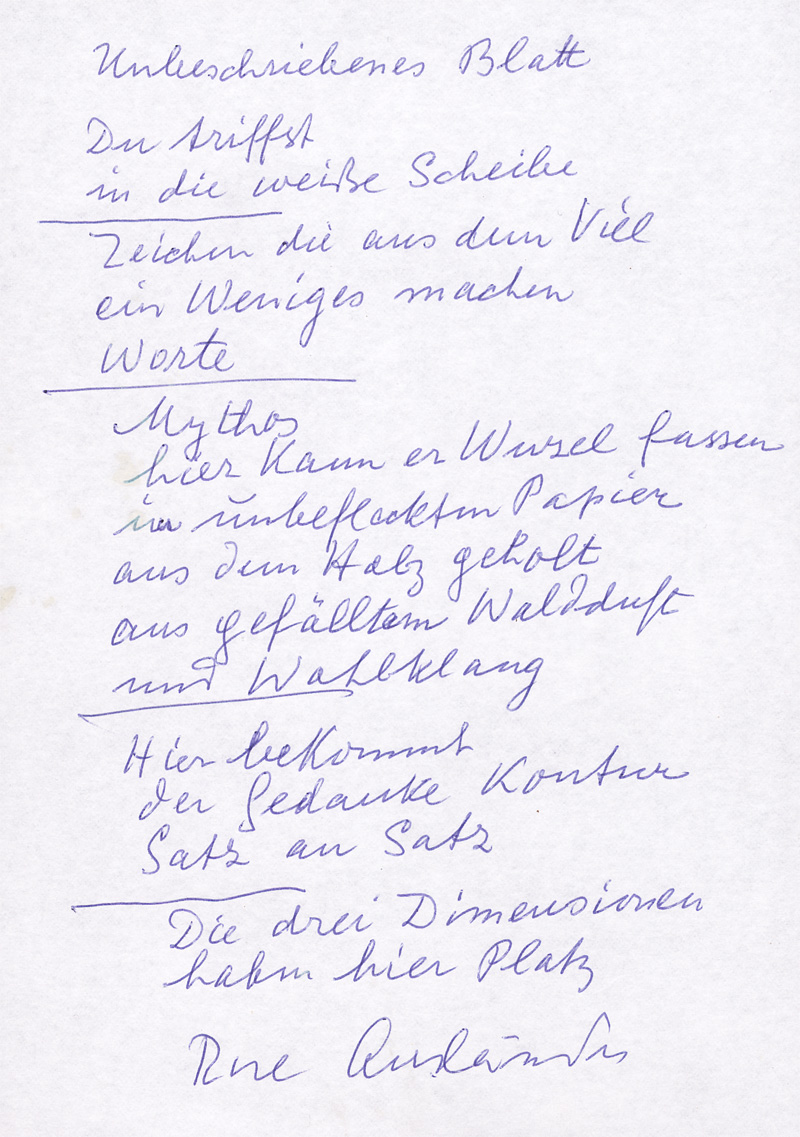 Unbeschriebenes Blatt
Du triffst
in die weiße Scheibe
Zeichen die aus dem Viel
ein Weniges machen
Worte
Mythos
hier kann er Wurzel fassen
im unbefleckten Papier
aus dem Holz geholt
aus gefälltem Waldduft
und Waldklang
Hier bekommt
der Gedanke Kontur
Satz an Satz
Die drei Dimensionen
haben hier Platz
Rose Ausländer